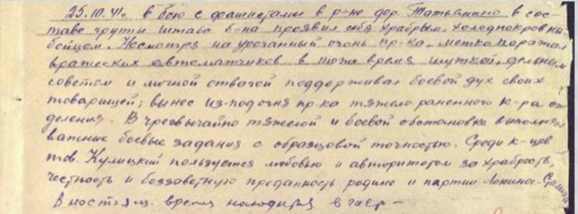 25.10.41г. в бою с фашистами в р-не дер. Татьянино в сос-
таве группы штаба б-на проявил себя храбрым, хладнокровным
бойцом. Несмотря на ураганный огонь пр-ка метко поражал
вражеских автоматчиков, в тоже время шуткой, дельным
советом и личной отвагой поддерживал боевой дух своих
товарищей; вынес из-под огня пр-ка тяжело раненного к-ра от-
деления. В чрезвычайно тяжелой и боевой обстановке выполнял
важные боевые задания с образцовой точностью. Среди к-цов
тов. Кулицкий пользуется любовью и авторитетом за храбрость,
честность и беззаветную преданность родине и партии Ленина-Сталина
В настоящ. время находится в